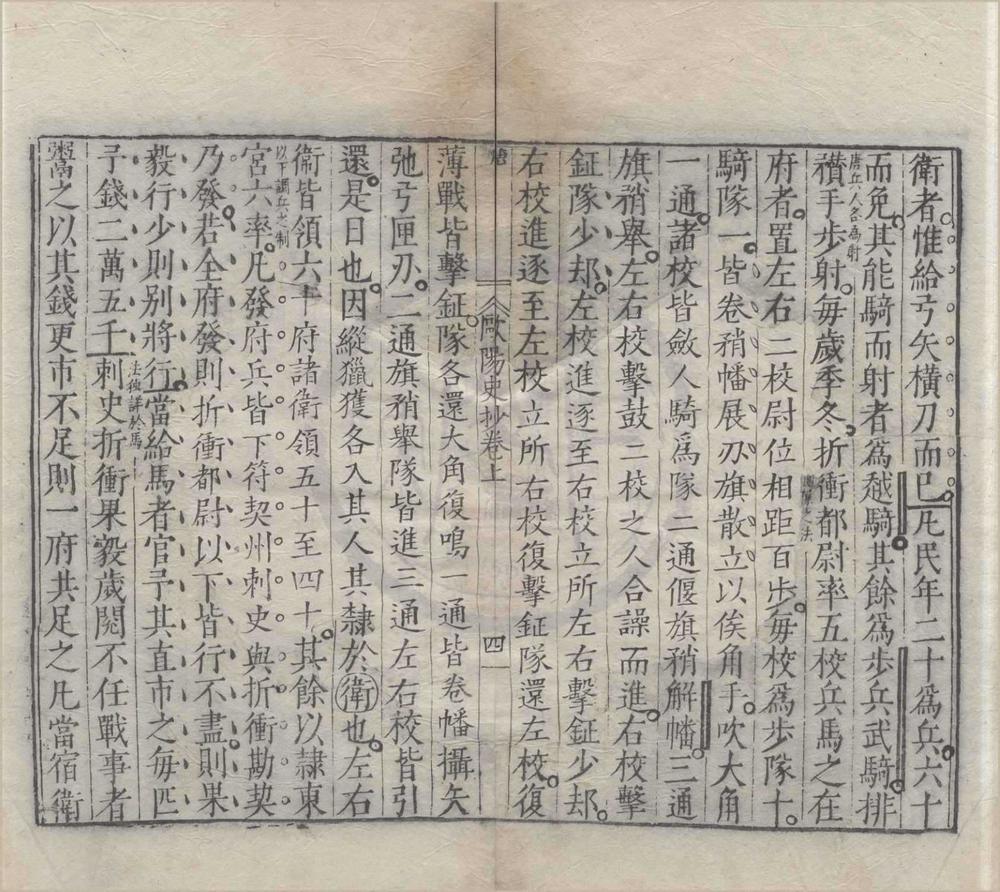 衛者惟給弓矢橫刀而已凡民年二十爲兵六十
而免其能騎而射者爲越騎其餘爲步兵武騎排
唐兵人各爲射
䂎手步射每歲季冬折衝都尉率五校兵馬之在
府者置左右二校尉位相距百步每校爲步隊十
騎隊一皆卷矟幡展刃旗散立以俟角手吹大角
一通諸校皆斂人騎爲隊二通偃旗矟解幡三通
旗矟舉左右校擊鼓二校之人合譟而進右校擊
鉦隊少却左校進逐至右校立所左右擊鉦少却
右校進逐至左校立所右校復擊鉦隊還左校復
歐陽史抄卷上
四
薄戰皆擊鉦隊各還大角復鳴一通皆卷幡攝矢
弛弓匣刃二通旗矟舉隊皆進三通左右校皆引
還是日也因縱獵獲各入其人其隸於衛也左右
衛皆領六十府諸衛領五十至四十其餘以隸東
以下調兵之制
宮六率凡發府兵皆下符契州刺史與折衝勘契
乃發若全府發則折衝都尉以下皆行不盡則果
毅行少則别將行當給馬者官予其直市之每匹
予錢二萬五千刺史折衝果毅歲閱不任戰事者
鬻之以其錢更市不足則一府共足之凡當宿衛